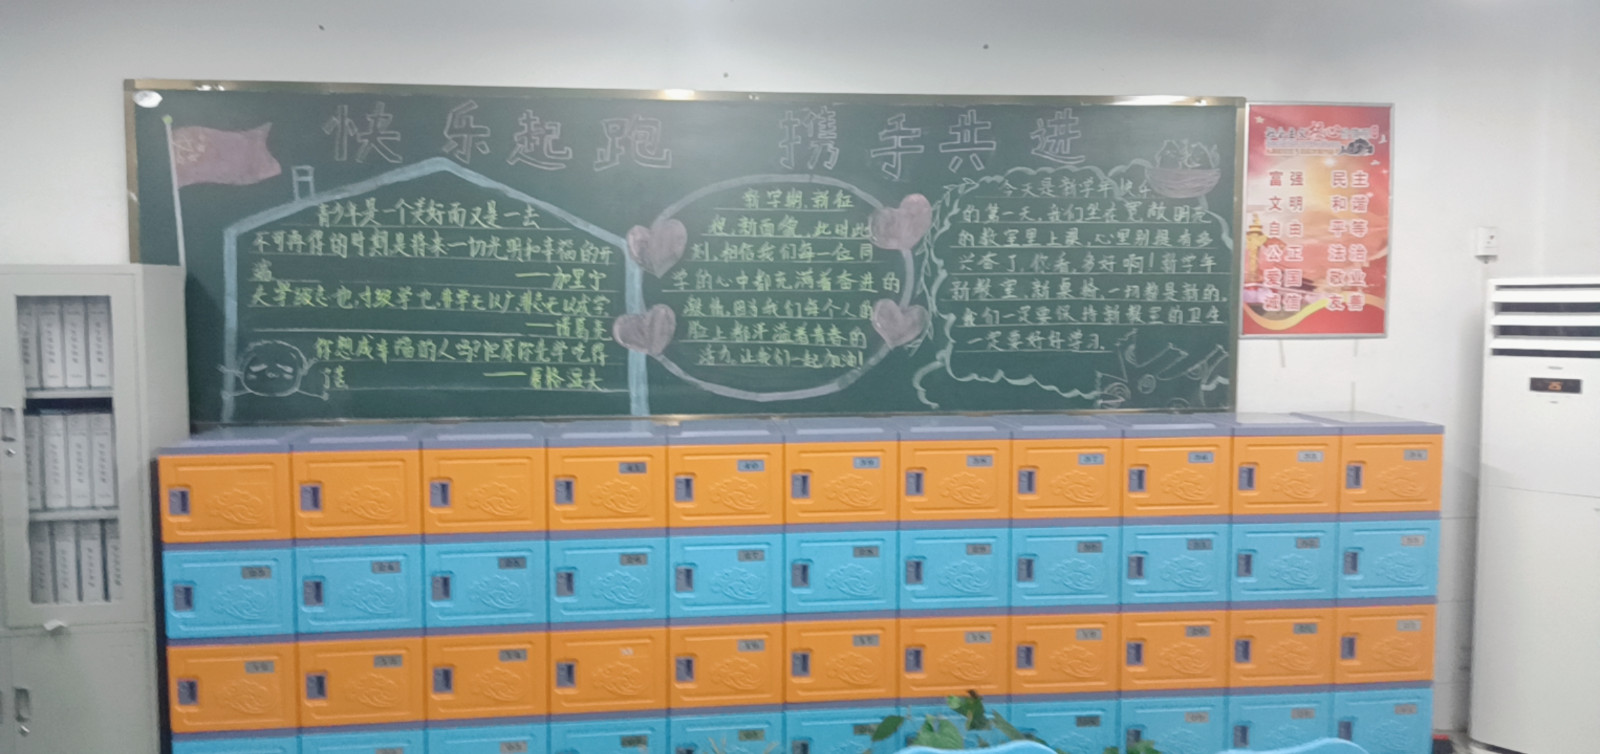 快乐起跑 携手共进
青少年是一个美好而又是一去
不可再得的时期是将来一切光明和幸福的开
端
——加里宁
——诸葛亮
你想成幸福的人吗?但愿你先学吃得
了苦
——屠格涅夫
新学期,新征
程,新面貌,此时此
刻,相信我们每一位同
学的心中都充满着奋进的
激情,因为我们每个人的
脸上都洋溢着青春的
活力,让我们一起加油!
今天是新学年
的第一天,我们坐在宽敞明亮
的教室里上课,心里别提有多
兴奋了,你看,多好啊!新学年
新教室,新桌椅,一切都是新的,
我们一定要保持新教室的卫生
一定要好好学习.
富强 民主
文明 和谐
自由 平等
公正 法治
爱国 敬业
诚信 友善